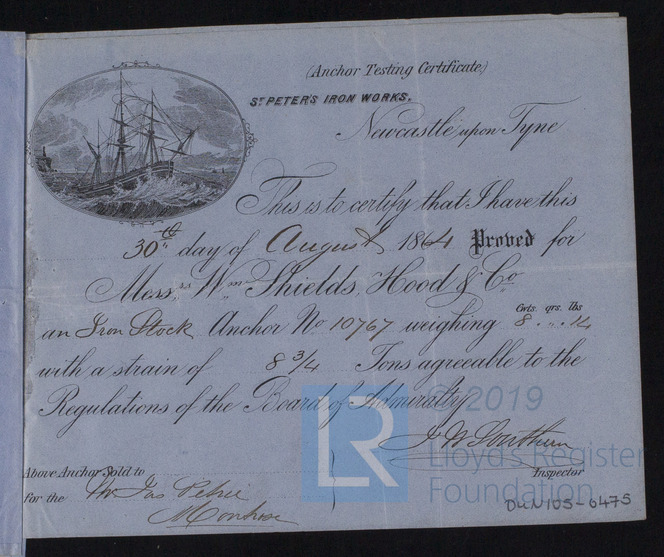 (Anchor Testing Certificate)
ST PETER'S IRON WORKS.
Newcastle upon Tyne
This is to certify that I have this
30th day of August 1864 Proved for
Messrs Wm Shields, Hood & Co
Cwts. qrs. lbs
an Iron Stock Anchor No 10767 weighing 8 . " . 14
with a strain of 8 3/4 Tons agreeable to the
Regulations of the Board of Admiralty
© 2019
LR
J W Southern
Lloyd's Register
Foundation
Inspector
Above Anchor Sold to
for the Mr Jas Petrie
Montrose
DUN105-0475